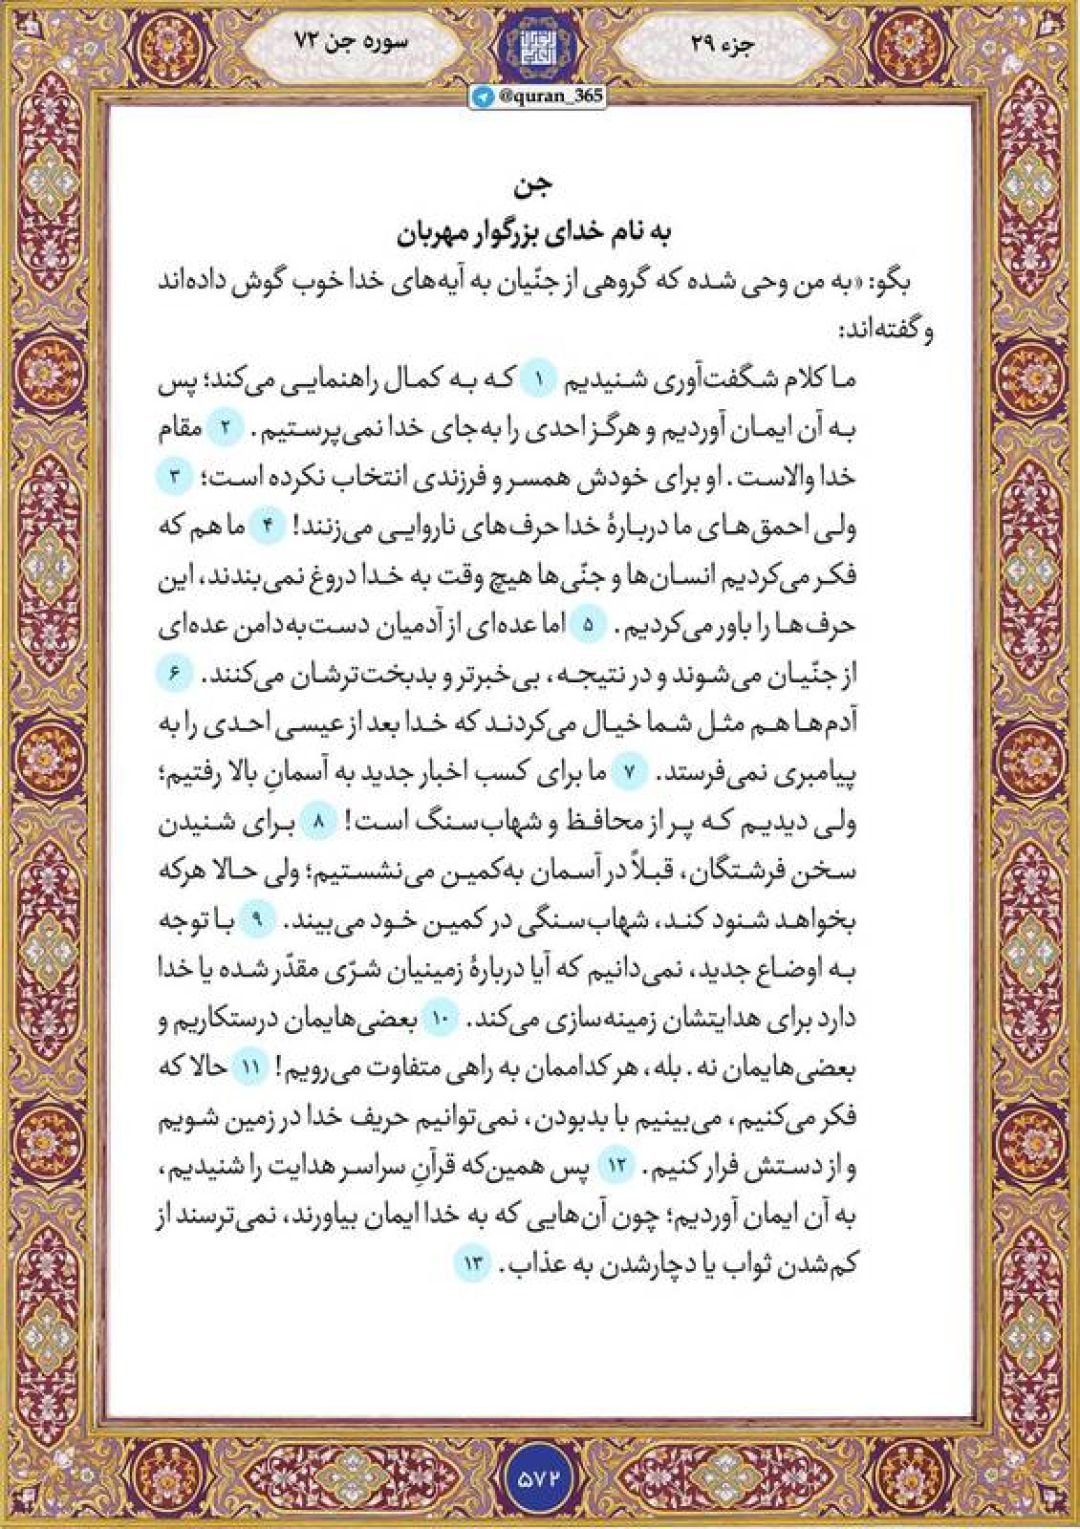 جزء ۲۹
سوره جن ۷۲
@quran_365
جن
به نام خدای بزرگوار مهربان
بگو: «به من وحی شده که گروهی از جنّیان به آیه‌های خدا خوب گوش داده‌اند
و گفته‌اند:
ما کلام شگفت‌آوری شنیدیم ۱ که به کمال راهنمایی می‌کند؛ پس
به آن ایمان آوردیم و هرگز احدی را به‌جای خدا نمی‌پرستیم. ۲ مقام
خدا والاست. او برای خودش همسر و فرزندی انتخاب نکرده است؛ ۳
ولی احمق‌های ما دربارهٔ خدا حرف‌های ناروایی می‌زنند! ۴ ما هم که
فکر می‌کردیم انسان‌ها و جنّی‌ها هیچ وقت به خدا دروغ نمی‌بندند، این
حرف‌ها را باور می‌کردیم. ۵ اما عده‌ای از آدمیان دست‌به‌دامن عده‌ای
از جنّیان می‌شوند و در نتیجه، بی‌خبرتر و بدبخت‌ترشان می‌کنند. ۶
آدم‌ها هم مثل شما خیال می‌کردند که خدا بعد از عیسی احدی را به
پیامبری نمی‌فرستد. ۷ ما برای کسب اخبار جدید به آسمانِ بالا رفتیم؛
ولی دیدیم که پر از محافظ و شهاب‌سنگ است! ۸ برای شنیدن
سخن فرشتگان، قبلاً در آسمان به‌کمین می‌نشستیم؛ ولی حالا هرکه
بخواهد شنود کند، شهاب‌سنگی در کمین خود می‌بیند. ۹ با توجه
به اوضاع جدید، نمی‌دانیم که آیا دربارهٔ زمینیان شرّی مقدّر شده یا خدا
دارد برای هدایتشان زمینه‌سازی می‌کند. ۱۰ بعضی‌هایمان درستکاریم و
بعضی‌هایمان نه. بله، هر کداممان به راهی متفاوت می‌رویم! ۱۱ حالا که
فکر می‌کنیم، می‌بینیم با بدبودن، نمی‌توانیم حریف خدا در زمین شویم
و از دستش فرار کنیم. ۱۲ پس همین‌که قرآنِ سراسر هدایت را شنیدیم،
به آن ایمان آوردیم؛ چون آن‌هایی که به خدا ایمان بیاورند، نمی‌ترسند از
کم‌شدن ثواب یا دچارشدن به عذاب. ۱۳
۵۷۲